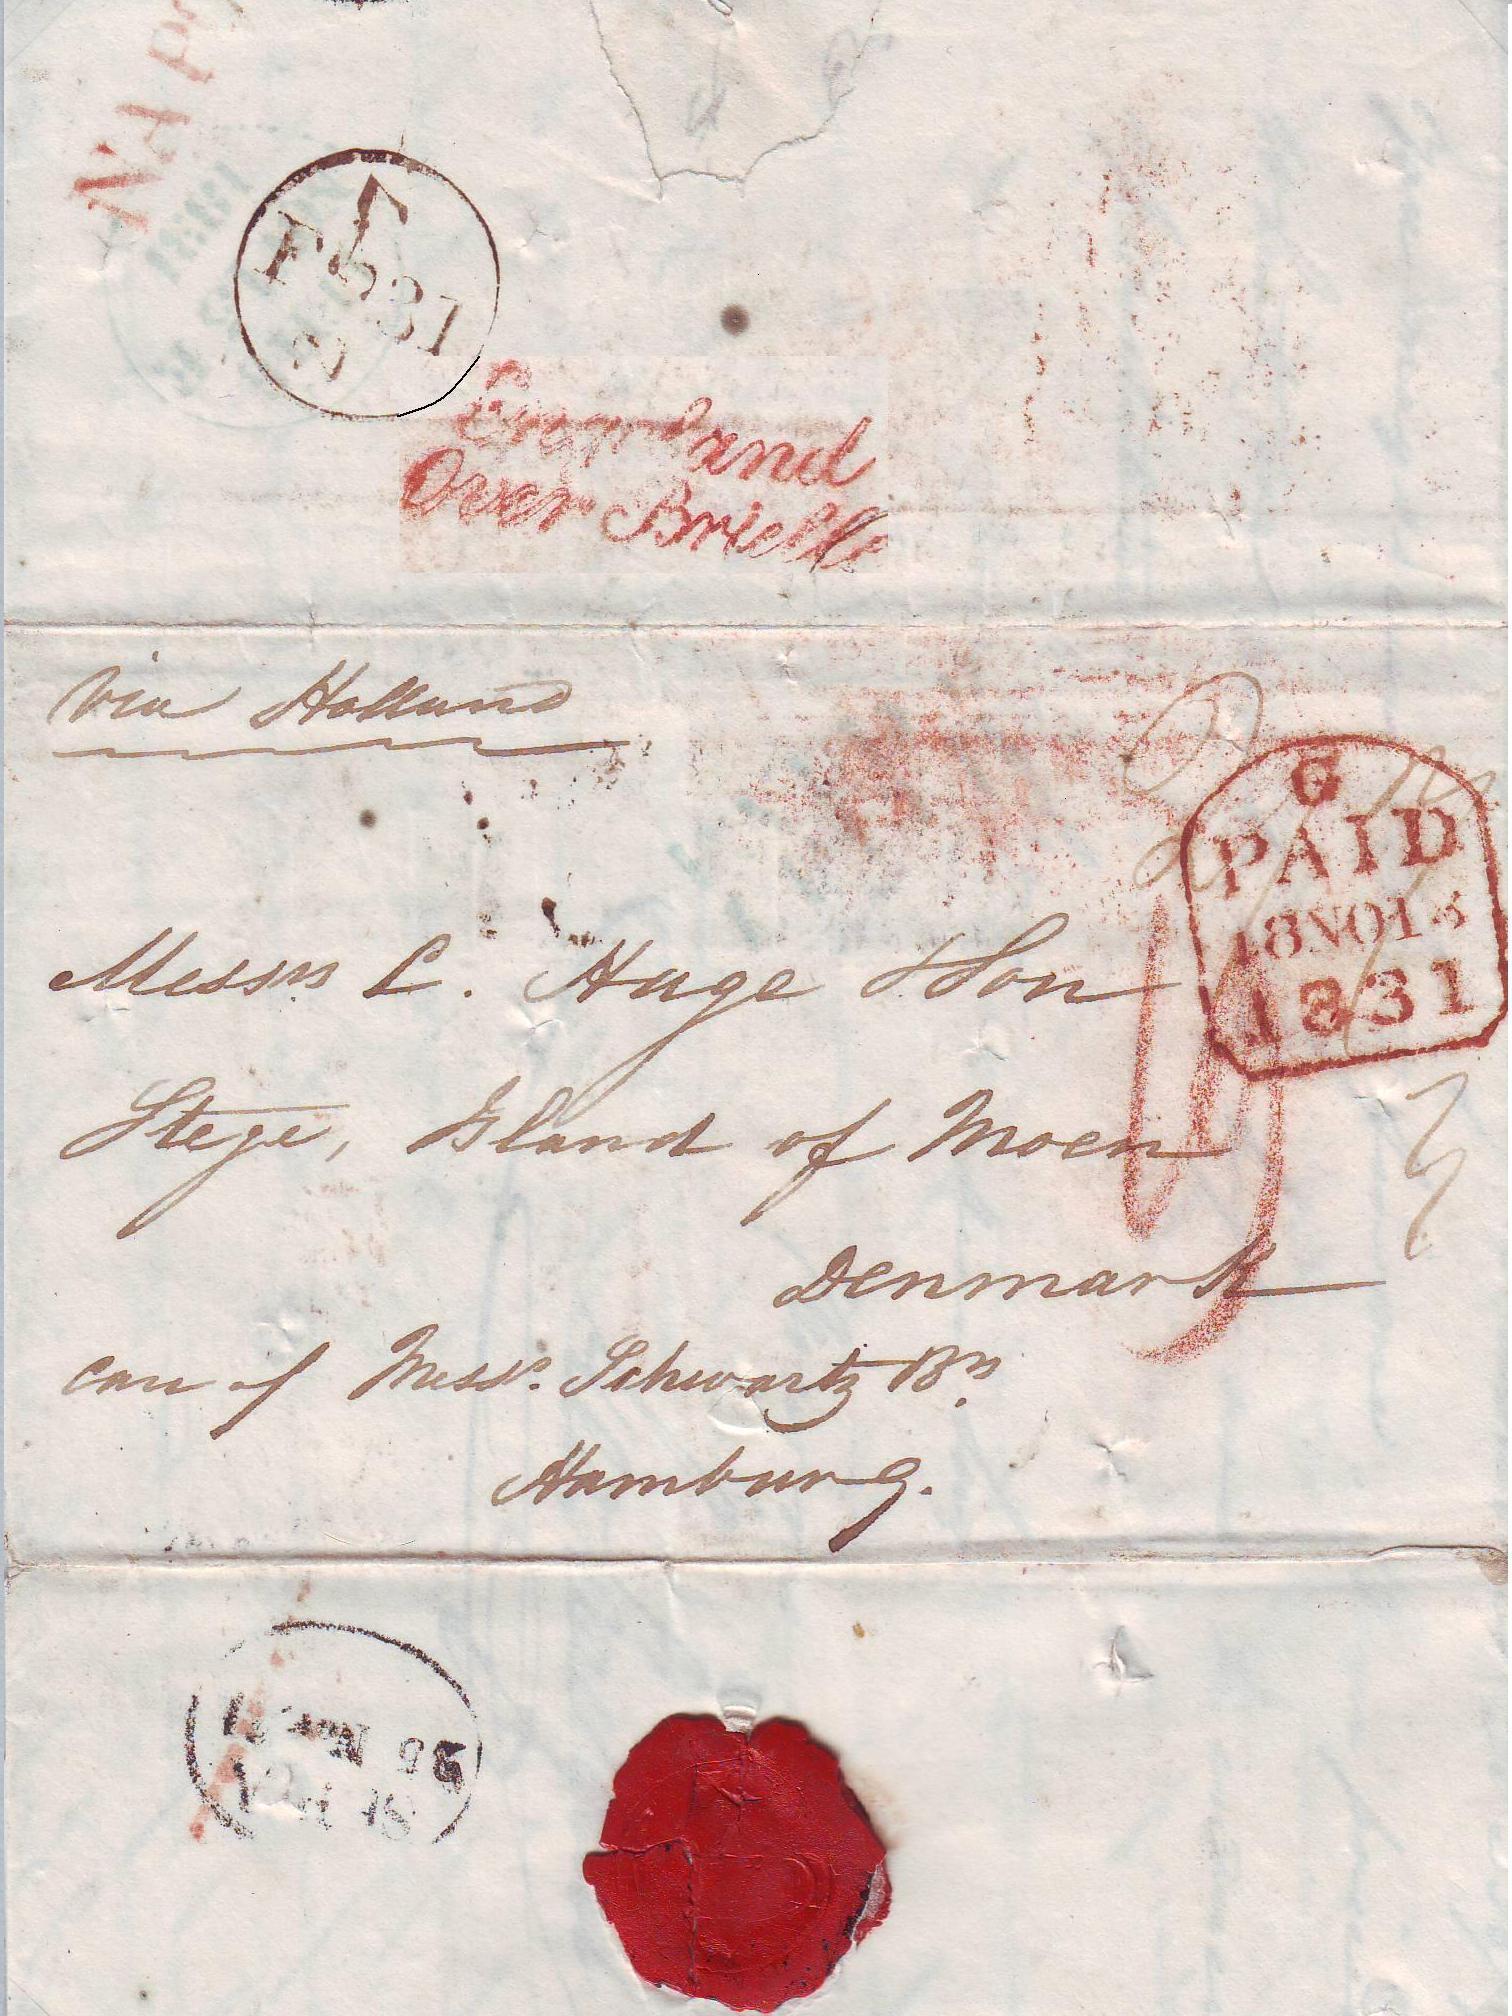 F 31
England
Over Brielle
via Holland
G
PAID
18NO18
1831
Messrs L. Hage & Son
Stege, Island of Moen
Denmark
care of Messrs. Schwartz Brs
Hamburg.
25 Nov. 31